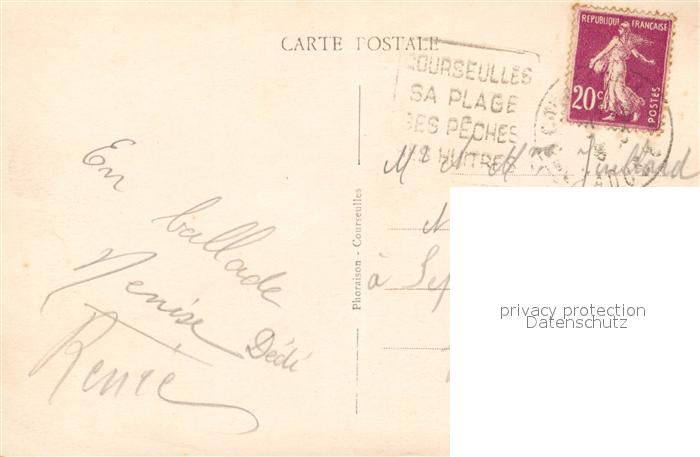 CARTE POSTALE
REPUBLIQUE FRANÇAISE
20c
POSTES
COURSEULLES
SA PLAGE
SES PÊCHES
SES HUITRES
En ballade
Denise
Dédé
Renée
à
Phoraison - Courseulles
privacy protection
Datenschutz